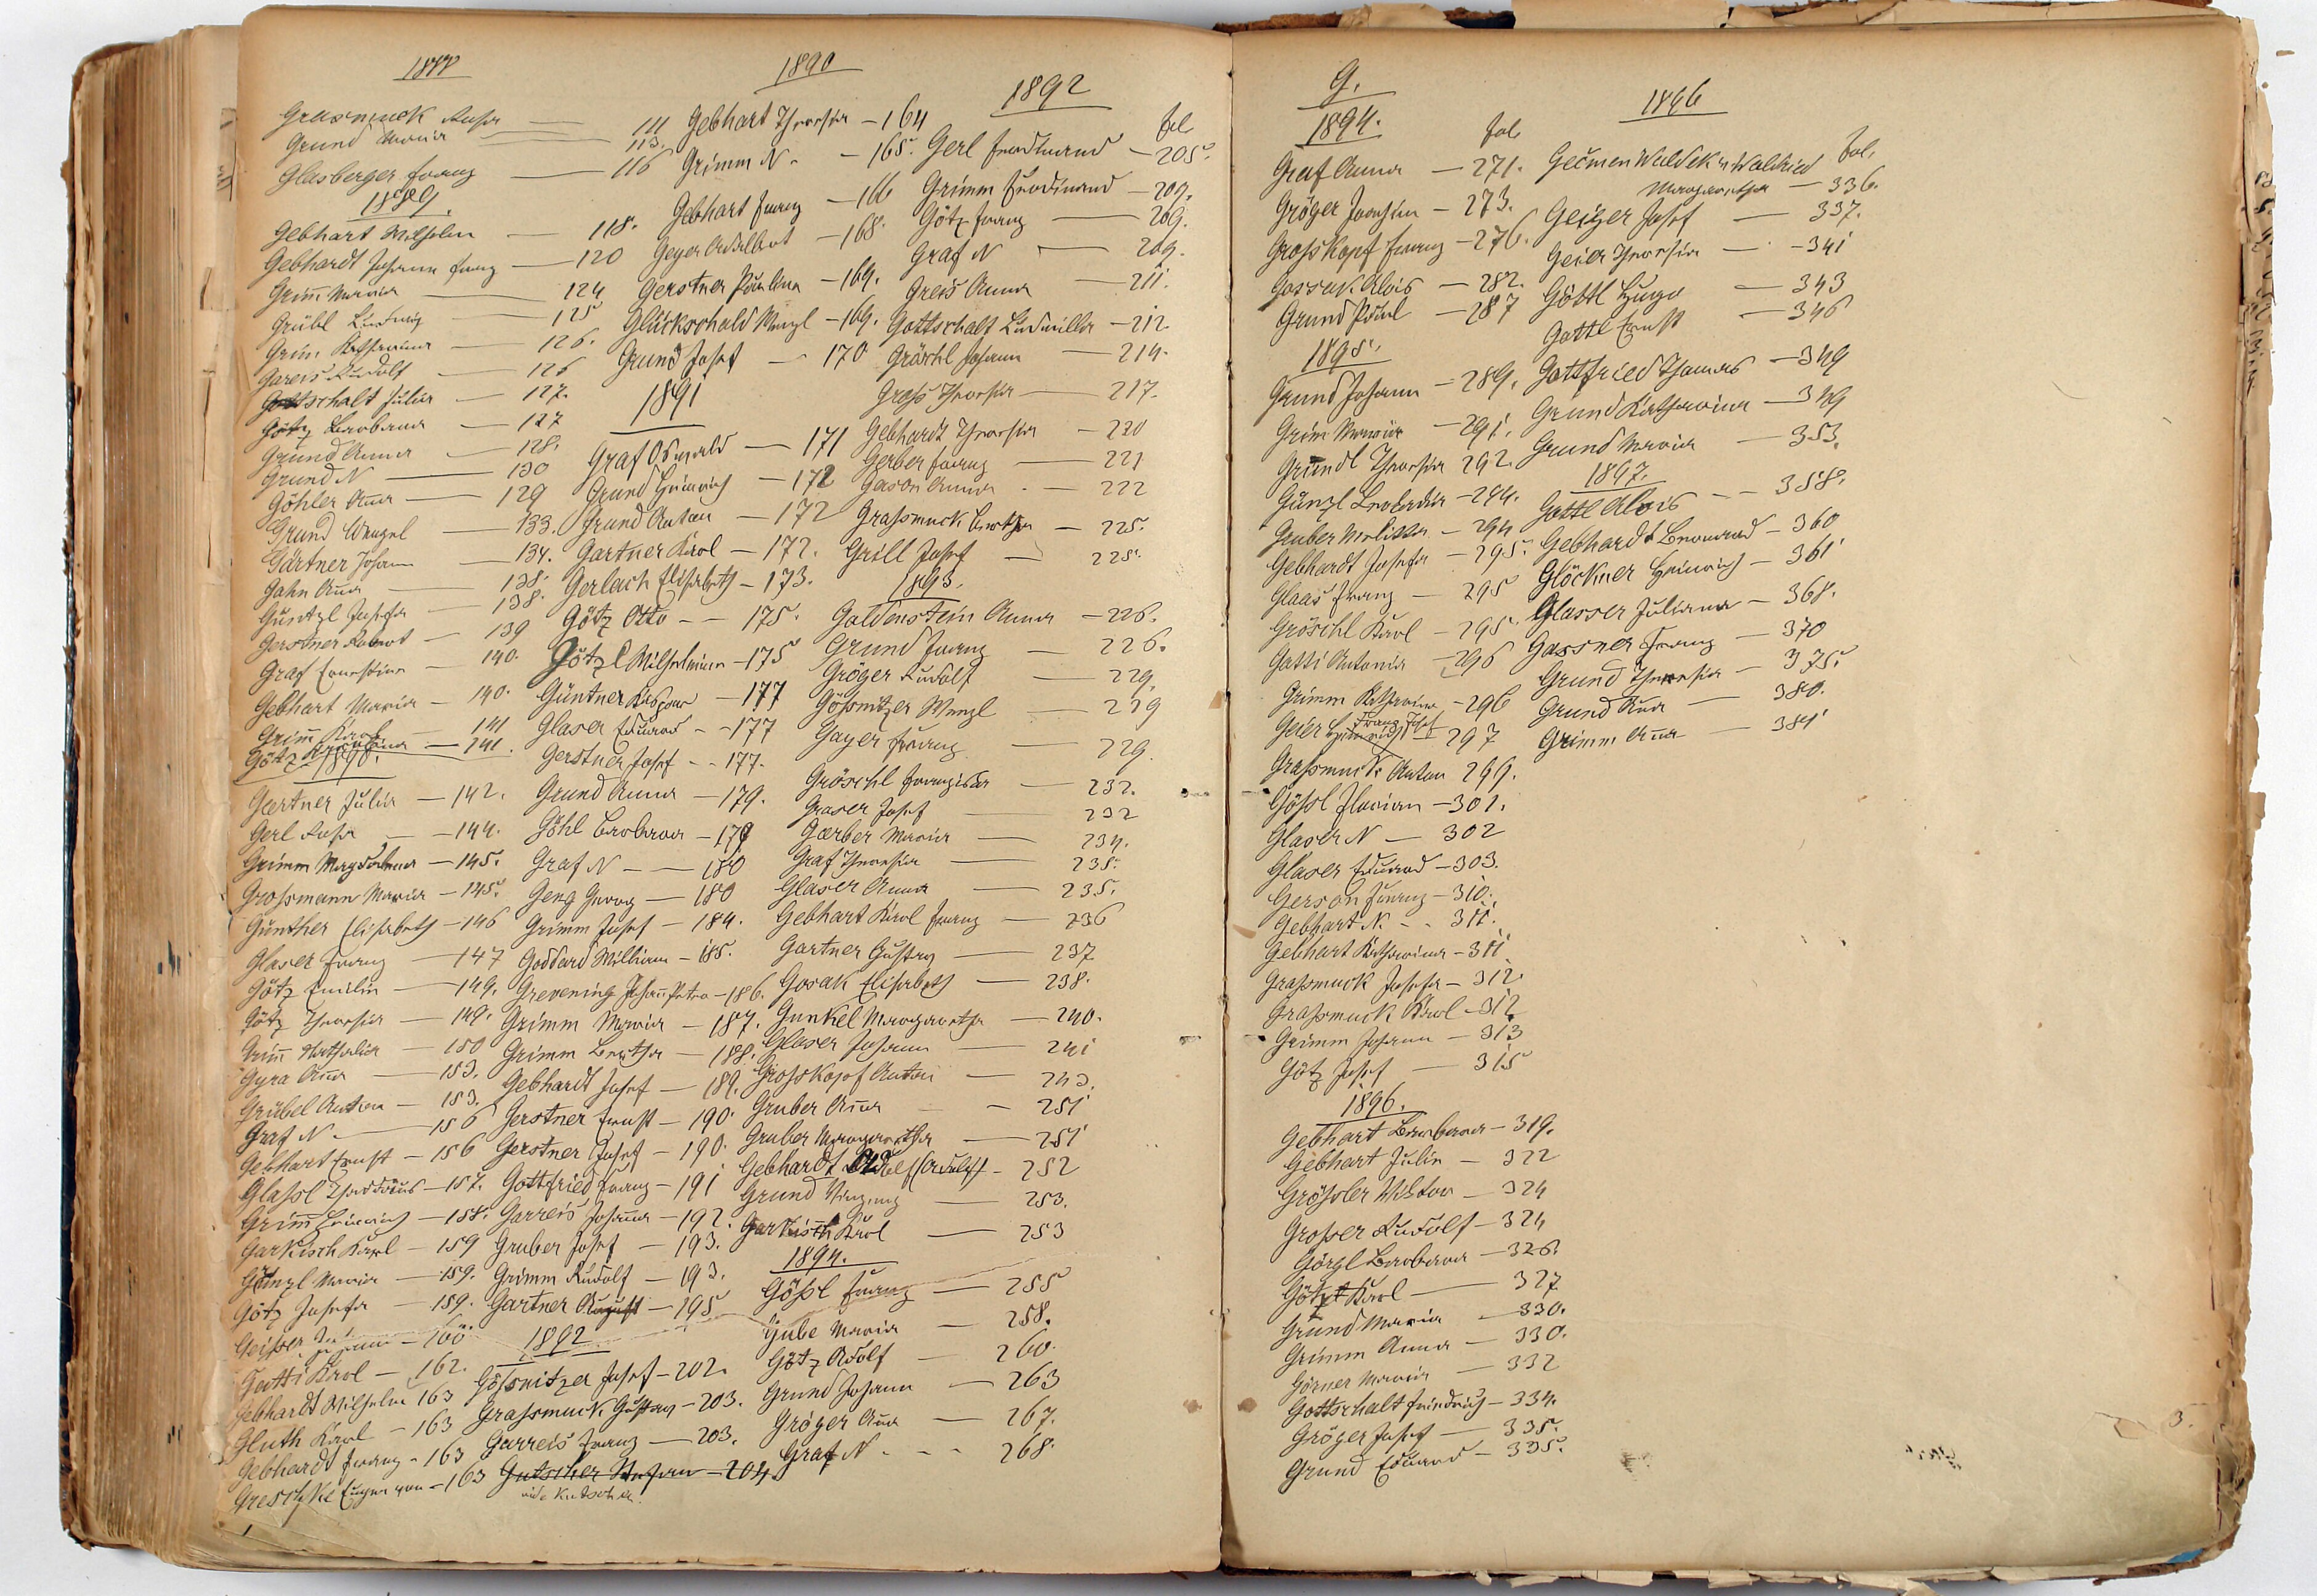 1888
Grasmuck Rosa — 111
Grund Maria — 113.
Glasberger Franz — 116
1889.
Gebhart Wilhelm — 118.
Gebhardt Johann Franz — 120
Grim̄ Maria — 124
Grübl Ludwig — 125
Grim̄ Katharina — 126.
Gareis Rudolf — 126
Gottschalt Julia — 127.
Götz Barbara — 127
Grund Anna — 128.
Grund N — 130
Göhler Ana — 129
Grund Wenzel — 133.
Gärtner Johann — 134.
Gahn Ana — 138.
Güntzl Josefa — 138.
Gerstner Robert — 139
Graf Ernestine — 140.
Gebhart Maria — 140.
Grim̄ Karl — 141
Götz — 141.
1890.
Gartner Julia — 142.
Gerl Rosa — 144.
Grimm Magdalena — 145.
Grossmann Maria — 145.
Günther Elisabeth — 146
Glaser Franz — 147
Götz Emilie — 149.
Götz Theresia — 149.
Grim̄ Nathalia — 150
Gyra Ana — 153.
Grübel Anton — 153.
Graf N — 156
Gebhart Ernst — 156
Glassl Thaddäus — 157.
Grim̄ Heinrich — 158.
Garkisch Karl — 159
Maria — 159.
Götz Josefa — 159.
Geisser — 160.
Gatti Karl — 162.
Gebhardt Wilhelm 163
Gluth Karl — 163
Gebhardt Franz — 163
Greschke Eugen von — 163
1890
Gebhart Theresia — 164
Grimm N. — 165.
Gebhart Franz — 166
Geyer Adalbert — 168.
Gerstner Paulina — 169.
Glückschald Wenzl — 169.
Grund Josef — 170
1891
Graf Oswald — 171
Grund Heinrich — 172
Grund Anton — 172
Gartner Karl — 172.
Gerlach Elisabeth — 173.
Götz Otto — 175.
Götzl Wilhelmine — 175
Güntner Kaspar — 177
Glaser Eduard — 177
Gerstner Josef — 177.
Grund Anna — 179.
Göhl Barbara — 179
Graf N — 180
Geng Georg — 180
Grimm Josef — 184.
Goddard William — 185.
Grevening Johan̄ Peter — 186.
Grimm Maria — 187.
Grimm Bertha — 188.
Gebhardt Josef — 189.
Gerstner Ernst — 190.
Gerstner Josef — 190.
Gottfried Franz — 191
Garreis Johana — 192.
Gruber Josef — 193.
Grimm Rudolf — 193.
Gartner August — 195
1892.
Gössnitzer Josef — 202.
Grassmuck Gustav — 203.
Garreis Franz — 203.
Gutscher Stefan — 204
vide Kutscher
1892
fol.
Gerl Ferdinand — 205.
Grimm Ferdinand — 209.
Götz Franz — 209.
Graf N — 209.
Greis Anna — 211.
Gottschalt Ludmilla — 212.
Gröschl Johann — 214.
Gross Theresia — 217.
Gebhardt Theresia — 220
Gerber Franz — 221
Gerson Anna — 222
Grassmuck Bertha — 225.
Grill Josef — 225.
1893.
Goldenstein Anna — 226.
Grund Franz — 226.
Gröger Rudolf — 229.
Gössnitzer Wenzl — 229
Gayer Franz — 229.
Gröschl Franziska — 232.
Graser Josef — 232
Gerber Maria — 234.
Graf Theresia — 235.
Glaser Anna — 235.
Gebhart Karl Franz — 236
Gartner Gustav — 237
Gosak Elisabeth — 238.
Gunkel Margaretha — 240.
Glaser Johann — 241
Grosskopf Anton — 243.
Gruber Ana — 251
Gruber Margaretha — 251
Gebhardt Adolf (Adolf) — 252
Grund — 253.
Garkisch Karl — 253
1894.
Gössl Franz — 255
Gube Maria — 258.
Götz Adolf — 260.
Grund Johann — 263
Gröger Ana — 267.
Graf N. — 268.
G.
1894.
fol.
Graf Anna — 271.
Gröger Joachim — 273.
Grosskopf Franz — 276.
Gossak Alois — 282.
Grund Paul — 287
1895.
Grund Johann — 289.
Grim̄ Maria — 291.
Gründl Theresia 292.
Günzl Leokadia — 294.
Gruber Melitta — 294
Gebhardt Josefa — 295.
Glaas Franz — 295
Gröschl Karl — 295.
Gatti Antonia — 296
Grimm Katharina — 296
Geier Heinrich Franz Josef — 297
Grassmuck Anton 299.
Gössl Florian — 301.
Glaser N — 302
Glaser Eduard — 303.
Gerson Franz — 310.
Gebhart N. — 311.
Gebhart Katharina — 311
Grassmuck Josefa — 312.
Grassmuck Karl — 312
Grimm Johann — 313
Götz Josef — 315
1896.
Gebhart Barbara — 319.
Gebhart Julie — 322
Grössler Viktor — 324
Grosser Rudolf — 324
Görgl Barbara — 326.
Götz Karl — 327
Grund Maria — 330.
Grimm Anna — 330.
Görner Maria — 332
Gottschalt Friedrich — 334.
Gröger Josef — 335.
Grund Eduard — 335.
1896
fol.
Gečmen Waldek v. Waldried
Margaretha — 336.
Geiger Josef — 337.
Geier Theresia — 341
Göttl Hugo — 343
Gottl Ernst — 346
Gottfried Thomas — 349
Grund Katharina — 349
Grund Maria — 353.
1897.
Gottl Alois — 358.
Gebhardt Bernard — 360
Glöckner Heinrich — 361
Glasser Juliana — 368.
Gassner Franz — 370
Grund Theresia — 375.
Grund Ana — 380.
Grimm Ana — 384